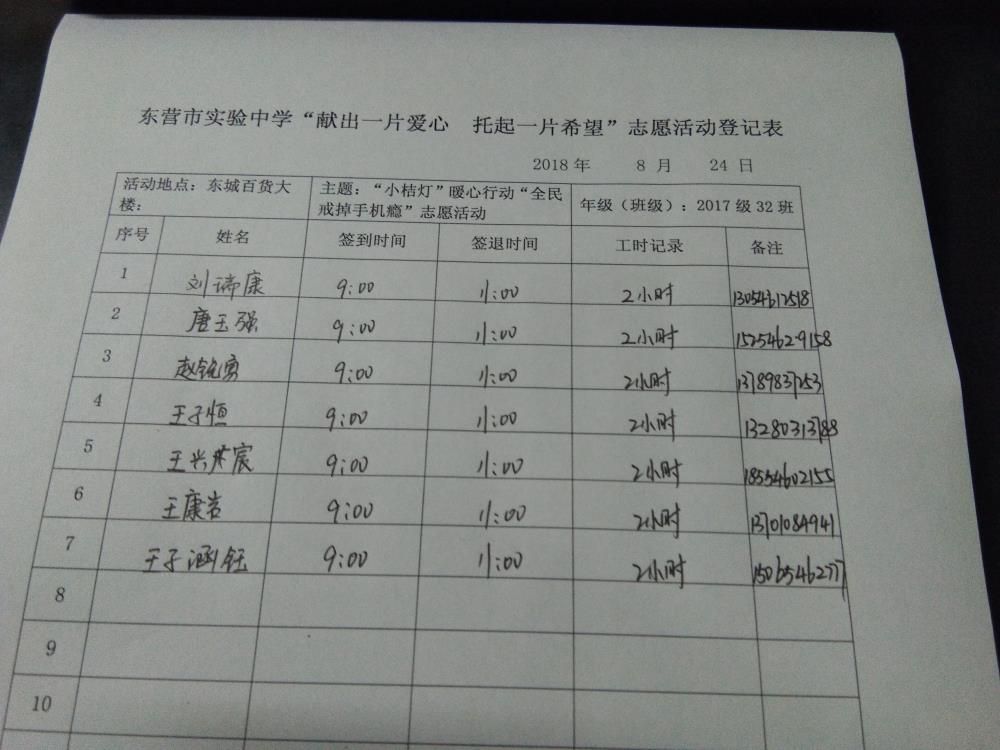 东营市实验中学“献出一片爱心 托起一片希望”志愿活动登记表
2018 年 8 月 24 日
活动地点：东城百货大楼： 主题：“小桔灯”暖心行动“全民戒掉手机瘾”志愿活动 年级（班级）：2017 级 32 班
序号 姓名 签到时间 签退时间 工时记录 备注
1 刘瑞康 9:00 11:00 2小时 13054612518
2 唐玉强 9:00 11:00 2小时 15254629158
3 赵铭勇 9:00 11:00 2小时 13789837253
4 王子恒 9:00 11:00 2小时 13280313788
5 王兴宸 9:00 11:00 2小时 18554602155
6 王康岩 9:00 11:00 2小时 13701084941
7 王子涵钰 9:00 11:00 2小时 15065462777
8
9
10